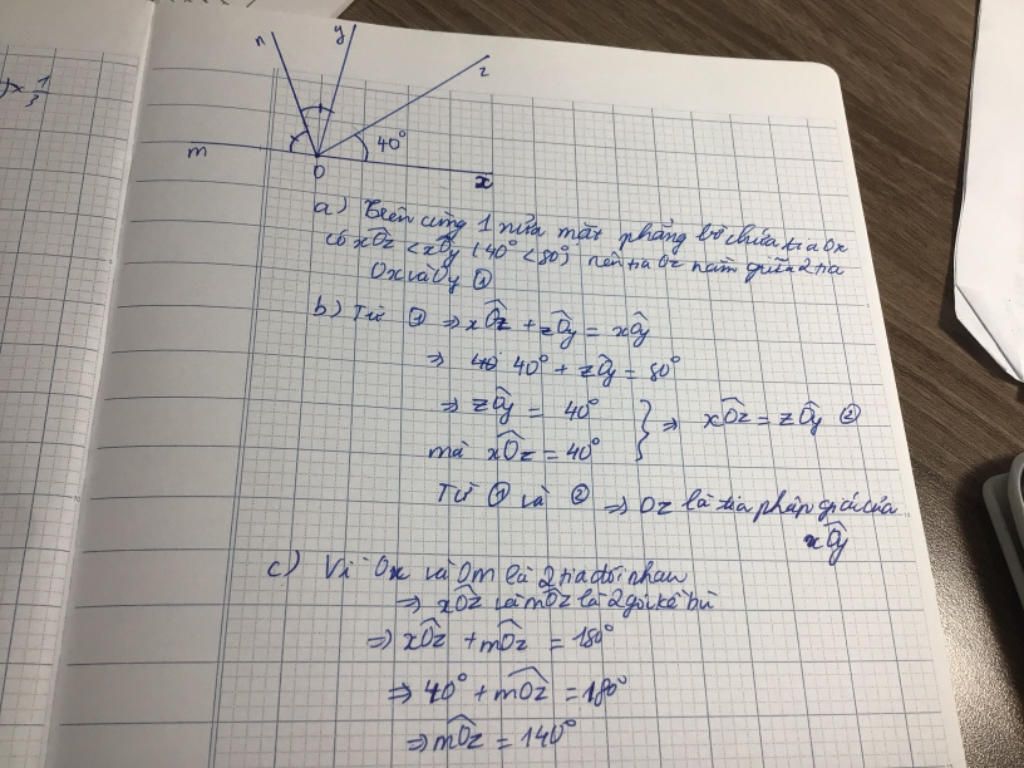 x 1/3
n
y
z
40°
m
O
x
a) Trên cùng 1 nửa mặt phẳng bờ chứa tia Ox
có xÔz < xÔy (40° < 80°) nên tia Oz nằm giữa 2 tia
Ox và Oy ①
b) Từ ① ⇒ xÔz + zÔy = xÔy
⇒ 40° + zÔy = 80°
⇒ zÔy = 40°
mà xÔz = 40°
} ⇒ xÔz = zÔy ②
Từ ① và ② ⇒ Oz là tia phân giác của
xÔy
c) Vì Ox và Om là 2 tia đối nhau
⇒ xÔz và mÔz là 2 góc kề bù
⇒ xÔz + mÔz = 180°
⇒ 40° + mÔz = 180°
⇒ mÔz = 140°